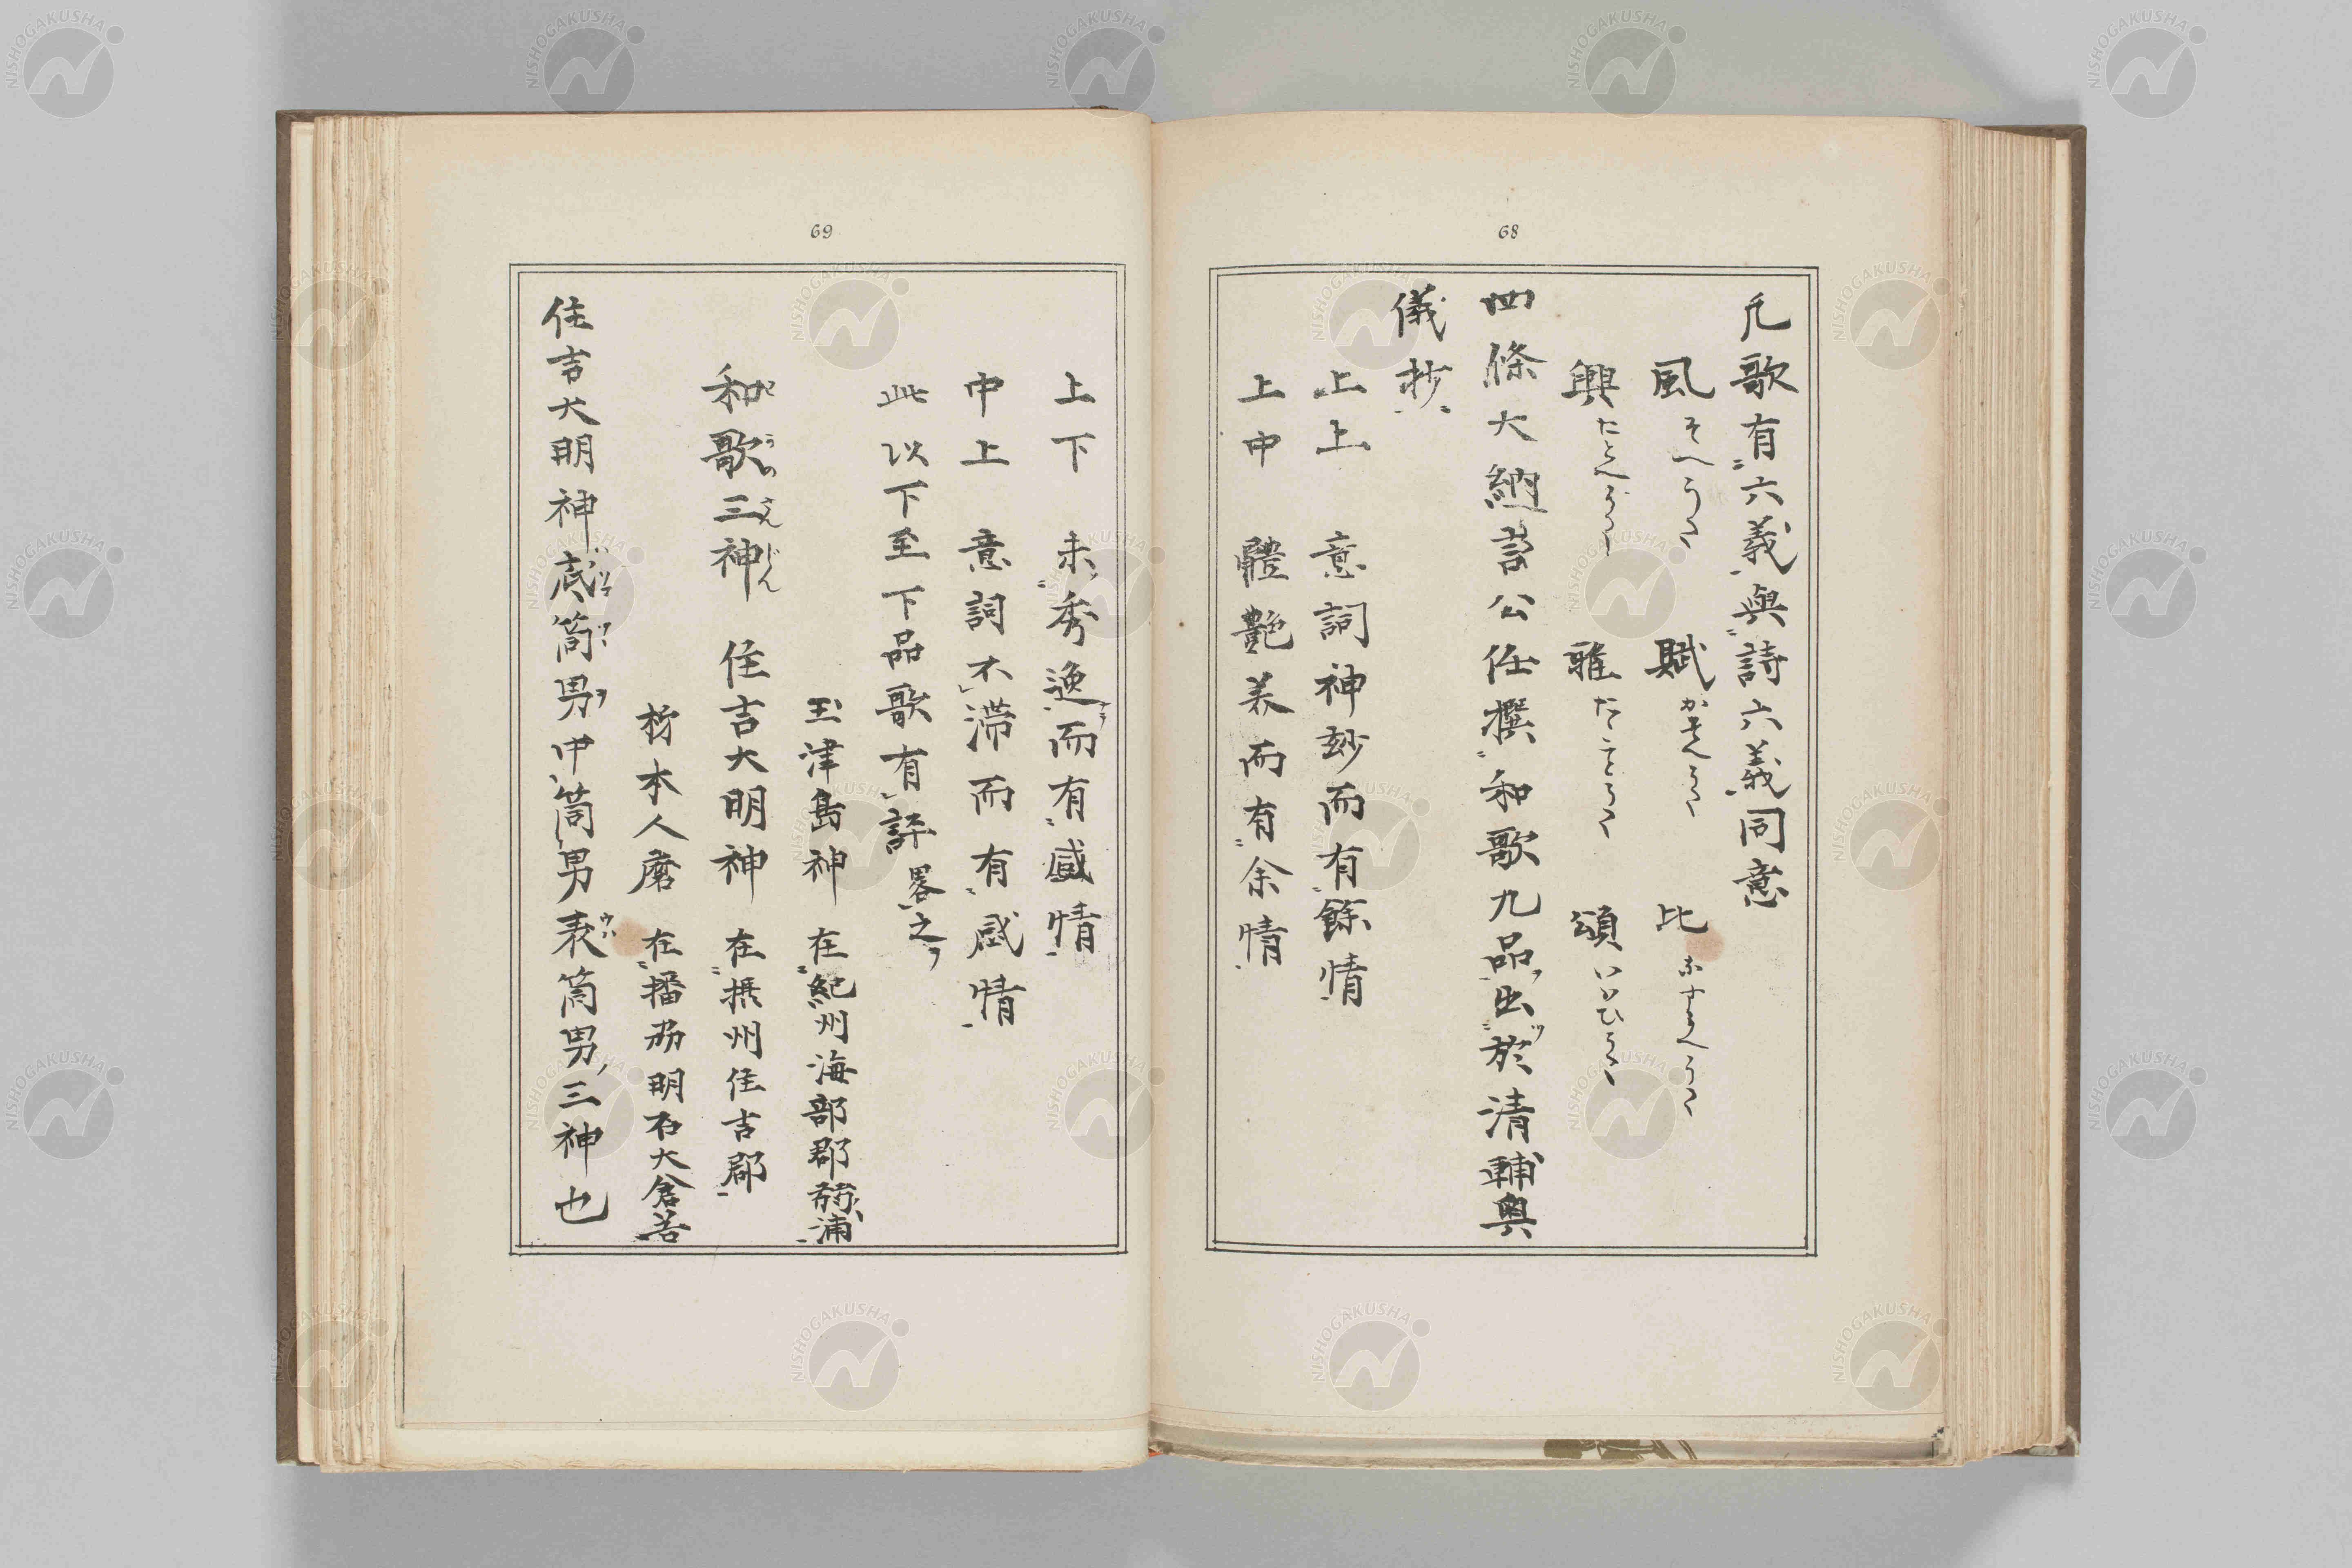 68
凡歌有六義與詩六義同意
風そへうた 賦かぞへうた 比なずらへうた
興たとへうた 雅たゞことうた 頌いはひうた
四條大納言公任撰和歌九品出於清輔奥
儀抄
上上 意詞神妙而有餘情
上中 體艶美而有余情
69
上下 未秀逸而有感情
中上 意詞不滞而有感情
此以下至下品歌有評畧之
玉津島神 在紀州海部郡弱浦
和歌三神 住吉大明神 在摂州住吉郡
柿本人麿 在播州明石大倉谷
住吉大明神底筒男中筒男表筒男三神也
NISHOGAKUSHA